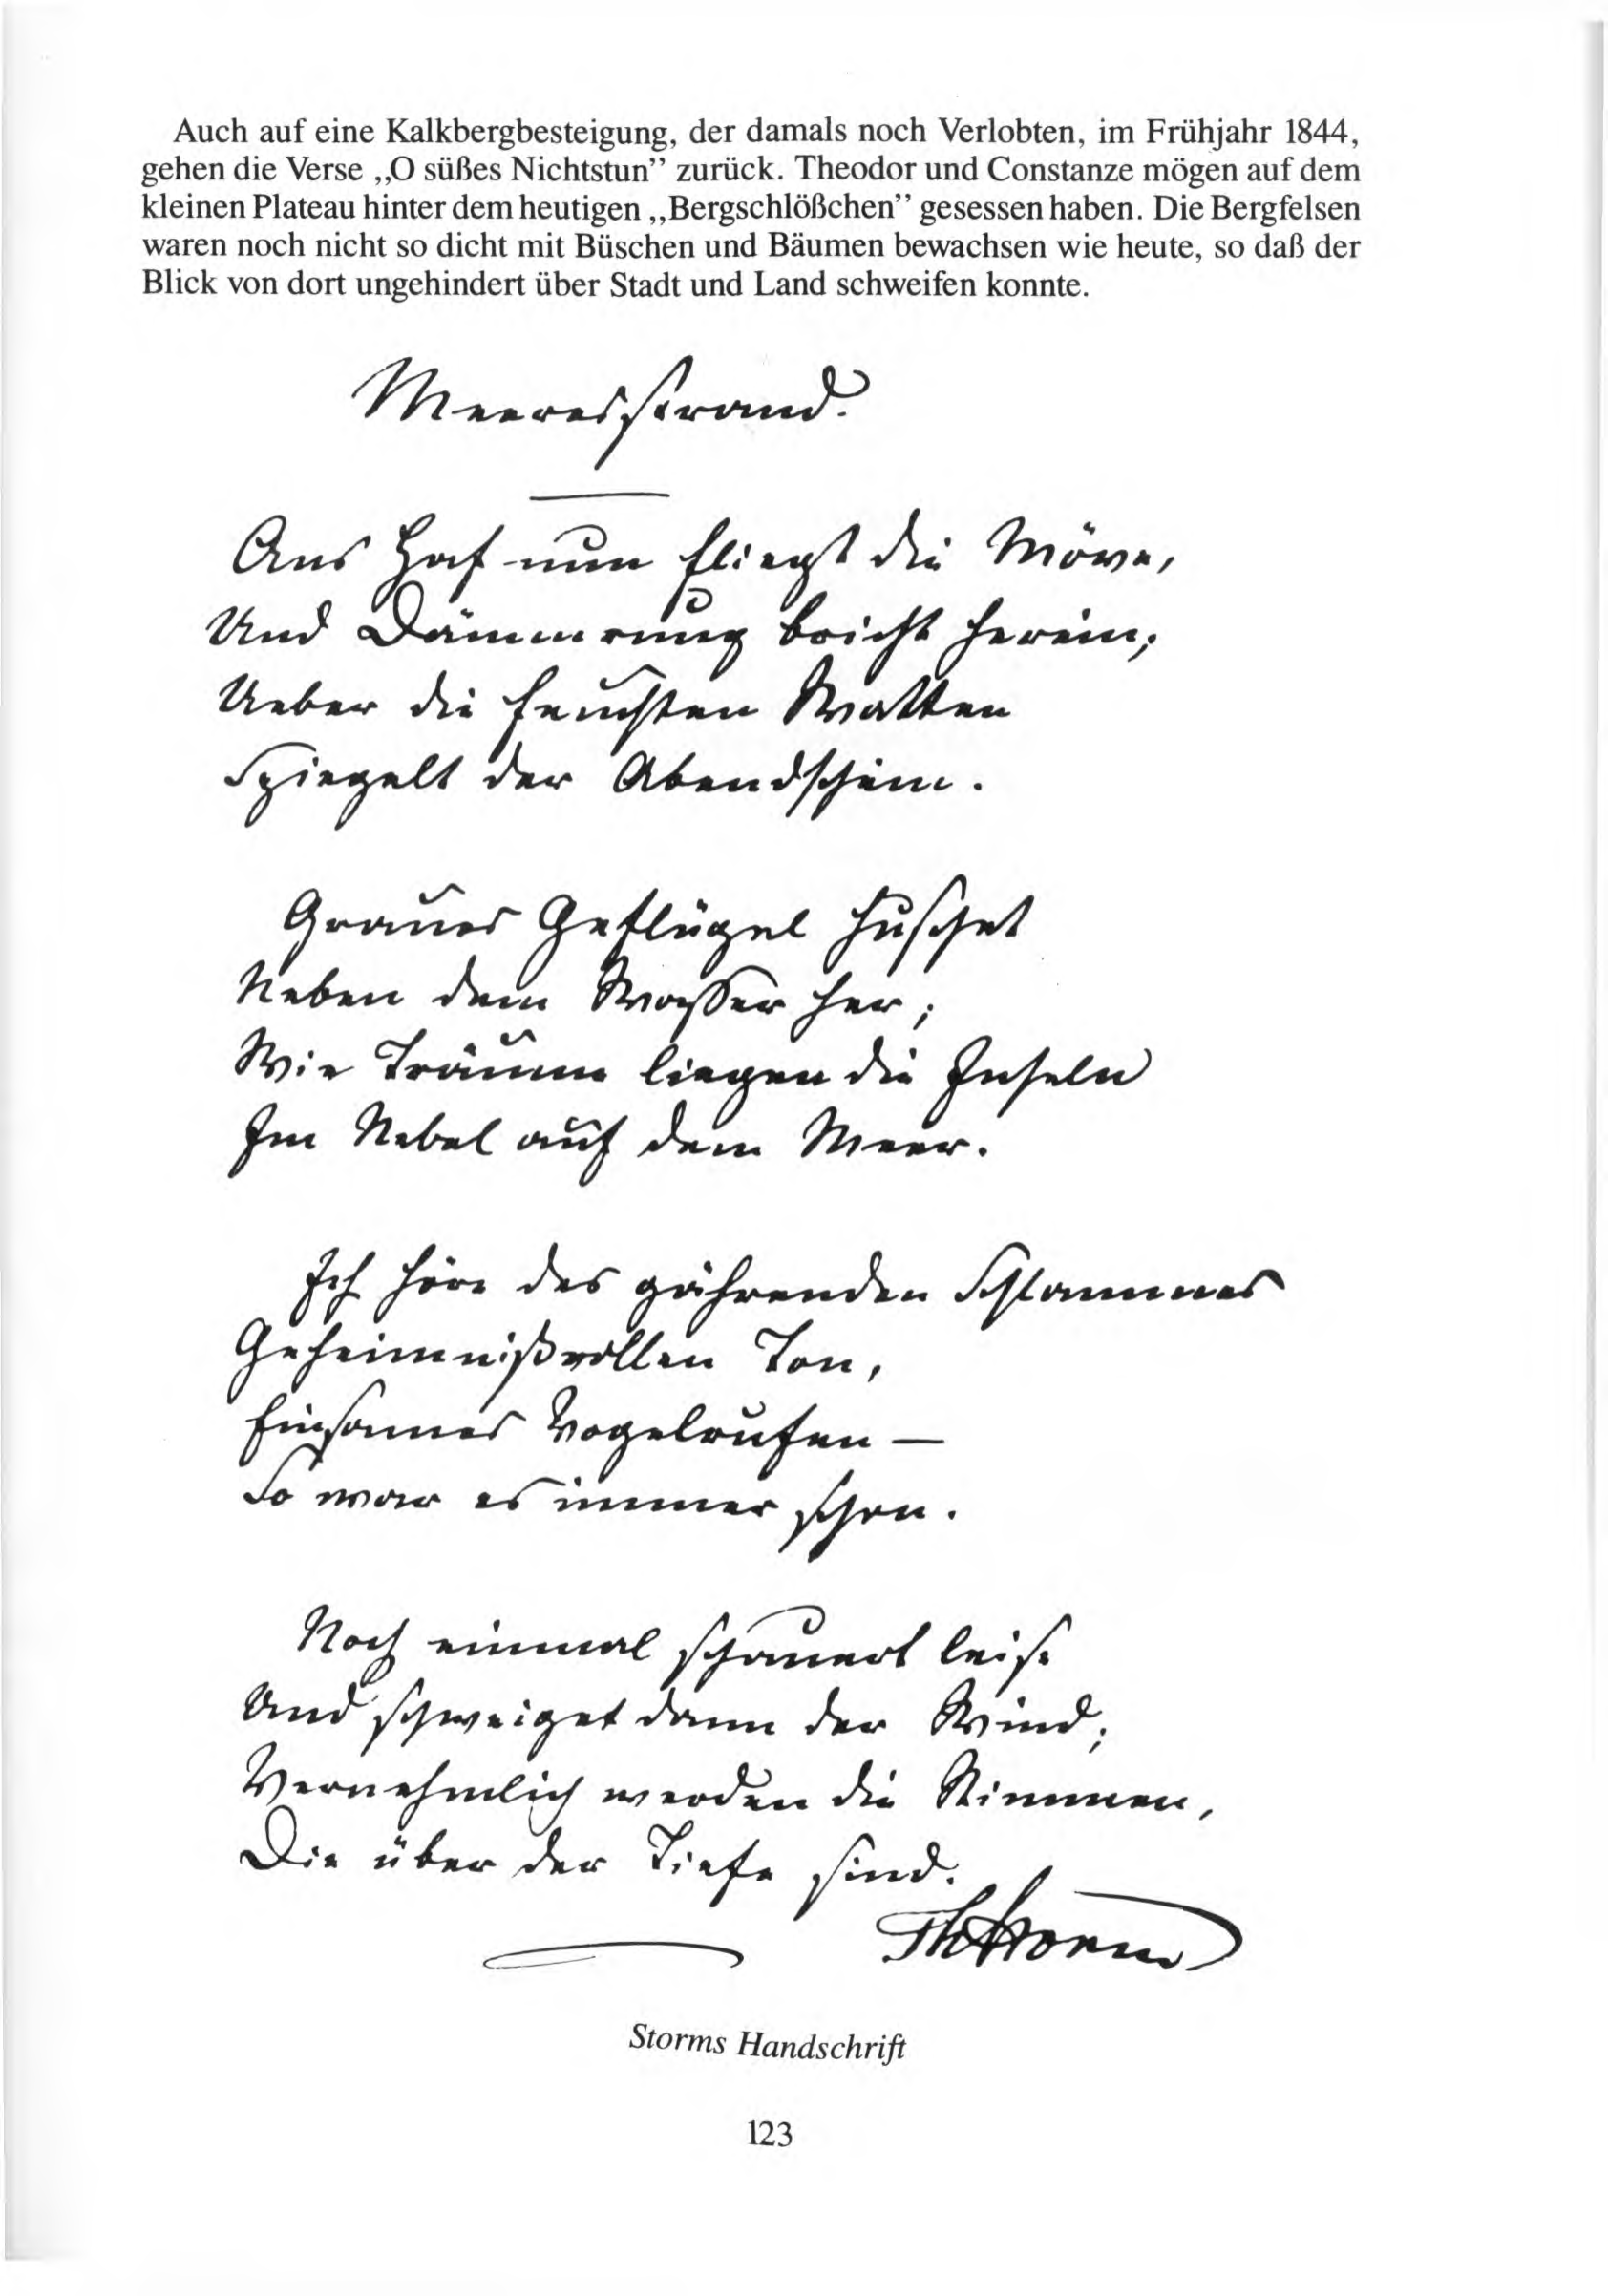 Auch auf eine Kalkbergbesteigung, der damals noch Verlobten, im Frühjahr 1844,
gehen die Verse „O süßes Nichtstun” zurück. Theodor und Constanze mögen auf dem
kleinen Plateau hinter dem heutigen „Bergschlößchen” gesessen haben. Die Bergfelsen
waren noch nicht so dicht mit Büschen und Bäumen bewachsen wie heute, so daß der
Blick von dort ungehindert über Stadt und Land schweifen konnte.
Meeresstrand.
Ans Haf nun fliegt die Möwe,
Und Dämmrung bricht herein;
Ueber die feuchten Watten
Spiegelt der Abendschein.
Graues Geflügel huschet
Neben dem Wasser her;
Wie Träume liegen die Inseln
Im Nebel auf dem Meer.
Ich höre des gährenden Schlammes
Geheimnißvollen Ton,
Einsames Vogelrufen —
So war es immer schon.
Noch einmal schauert leise
Und schweiget dann der Wind;
Vernehmlich werden die Stimmen,
Die über der Tiefe sind.
ThStorm
Storms Handschrift
123